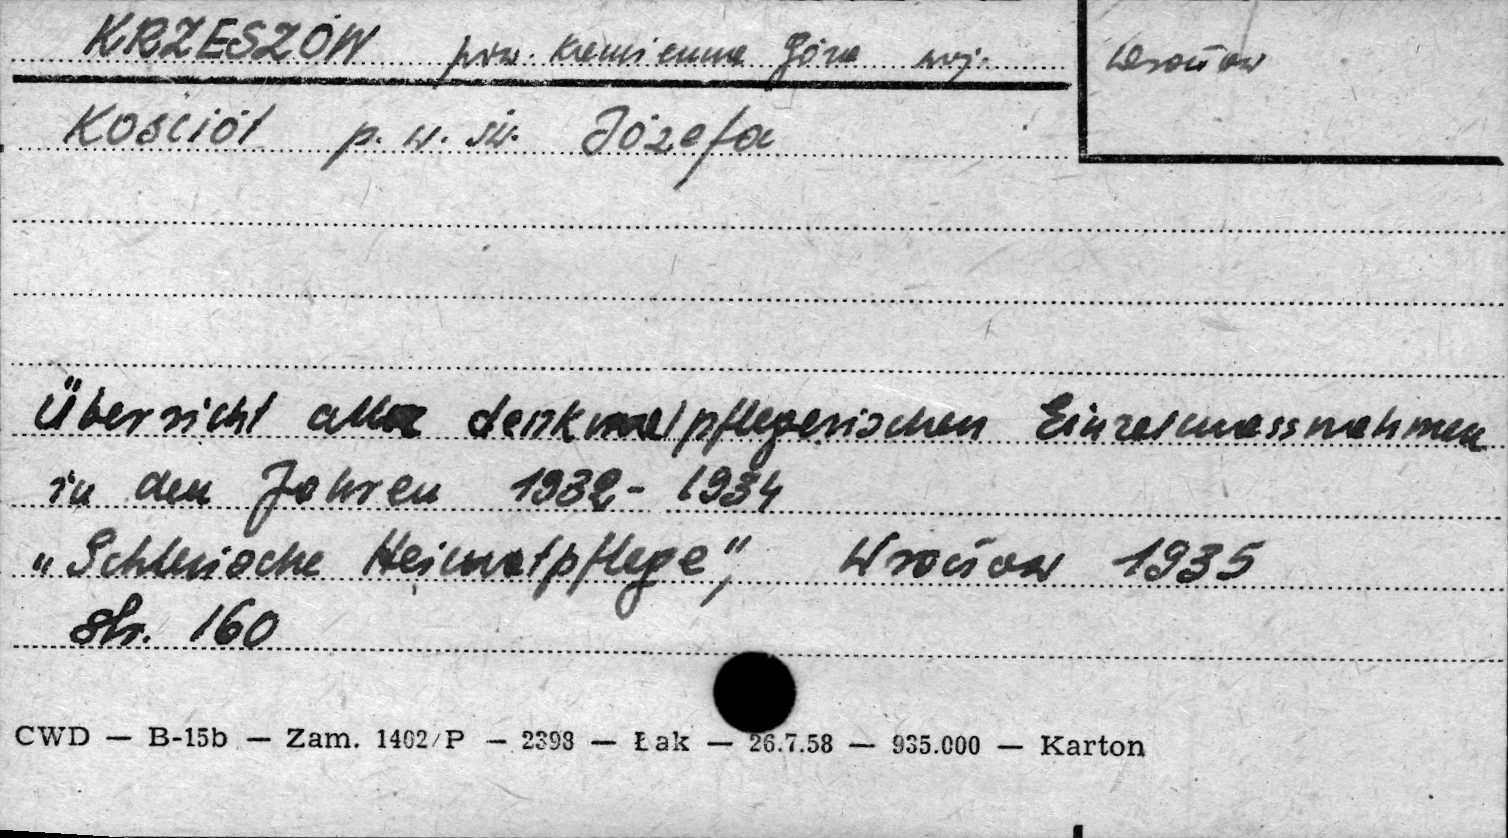 KRZESZÓW pow. Kamienna Góra woj. Wrocław
Kościół p. w. św. Józefa
Übersicht aller denkmalpflegerischen Einzelmassnahmen
in den Jahren 1932 - 1934
„Schlesische Heimatpflege”, Wrocław 1935
str. 160
CWD — B-15b — Zam. 1402/P — 2398 — Łak — 26.7.58 — 935.000 — Karton